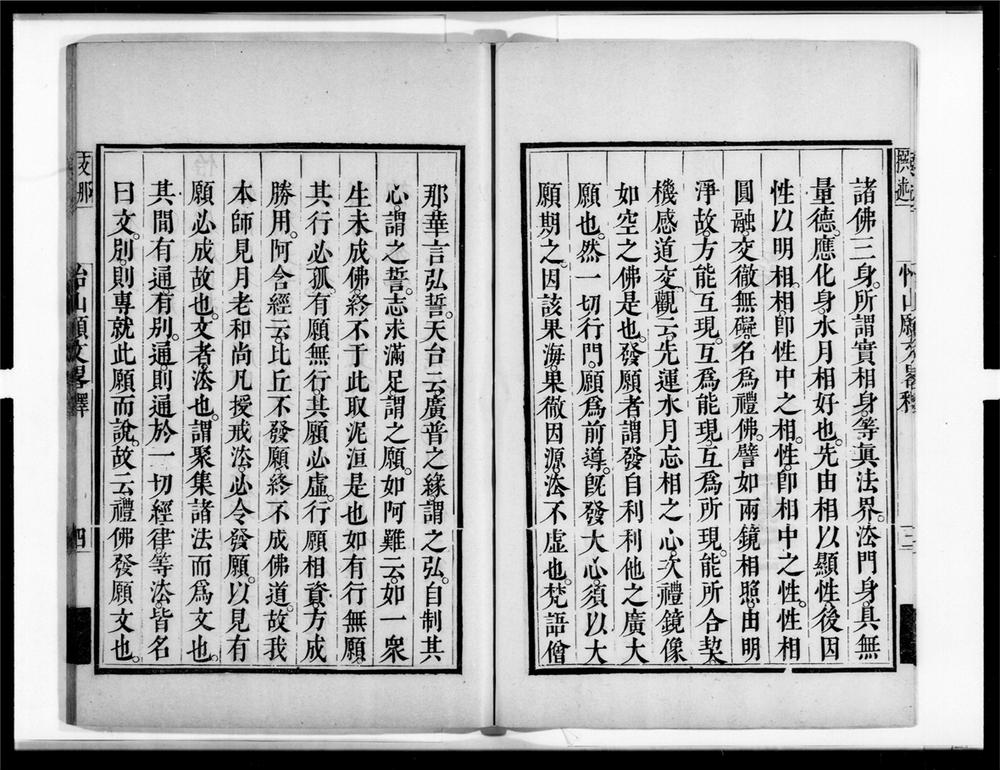 諸佛三身。所謂實相身。等眞法界。法門身。具無
量德。應化身。水月相好也。先由相以顯性。後因
性以明相。相卽性中之相。性卽相中之性。性相
圓融。交徹無礙。名爲禮佛。譬如兩鏡相照。由明
淨故。方能互現。互爲能現。互爲所現。能所合契。
機感道交。觀云。先運水月忘相之心。次禮鏡像
如空之佛是也。發願者。謂發自利利他之廣大
願也。然一切行門。願爲前導。旣發大心。須以大
願期之。因該果海。果徹因源。法不虛也。梵語僧
那。華言弘誓。天台云。廣普之緣。謂之弘。自制其
心。謂之誓。志求滿足。謂之願。如阿難云。如一衆
生未成佛。終不于此取泥洹是也。如有行無願。
其行必孤。有願無行。其願必虛。行願相資。方成
勝用。阿含經云。比丘不發願。終不成佛道。故我
本師見月老和尚。凡授戒法。必令發願。以見有
願必成故也。文者。法也。謂聚集諸法而爲文也。
其間有通有別。通。則通於一切經律等法。皆名
曰文。別。則專就此願而說。故云禮佛發願文也。
怡山願文畧釋
四
支那
撰述